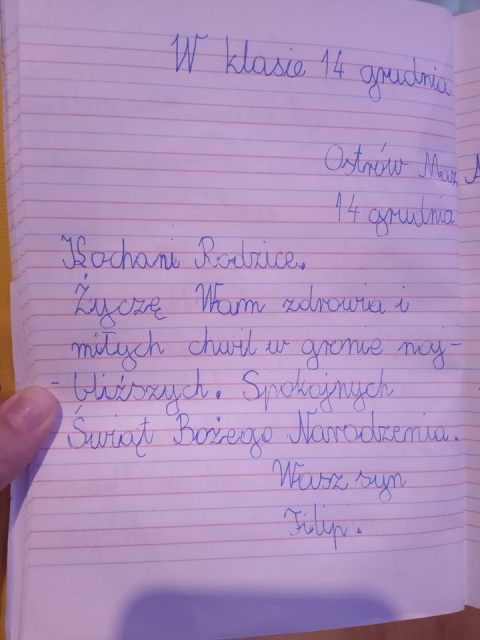 W klasie 14 grudnia
Ostrów Maz
14 grudnia
Kochani Rodzice.
Życzę Wam zdrowia i
miłych chwil w gronie naj-
-bliższych. Spokojnych
Świąt Bożego Narodzenia.
Wasz syn
Filip.